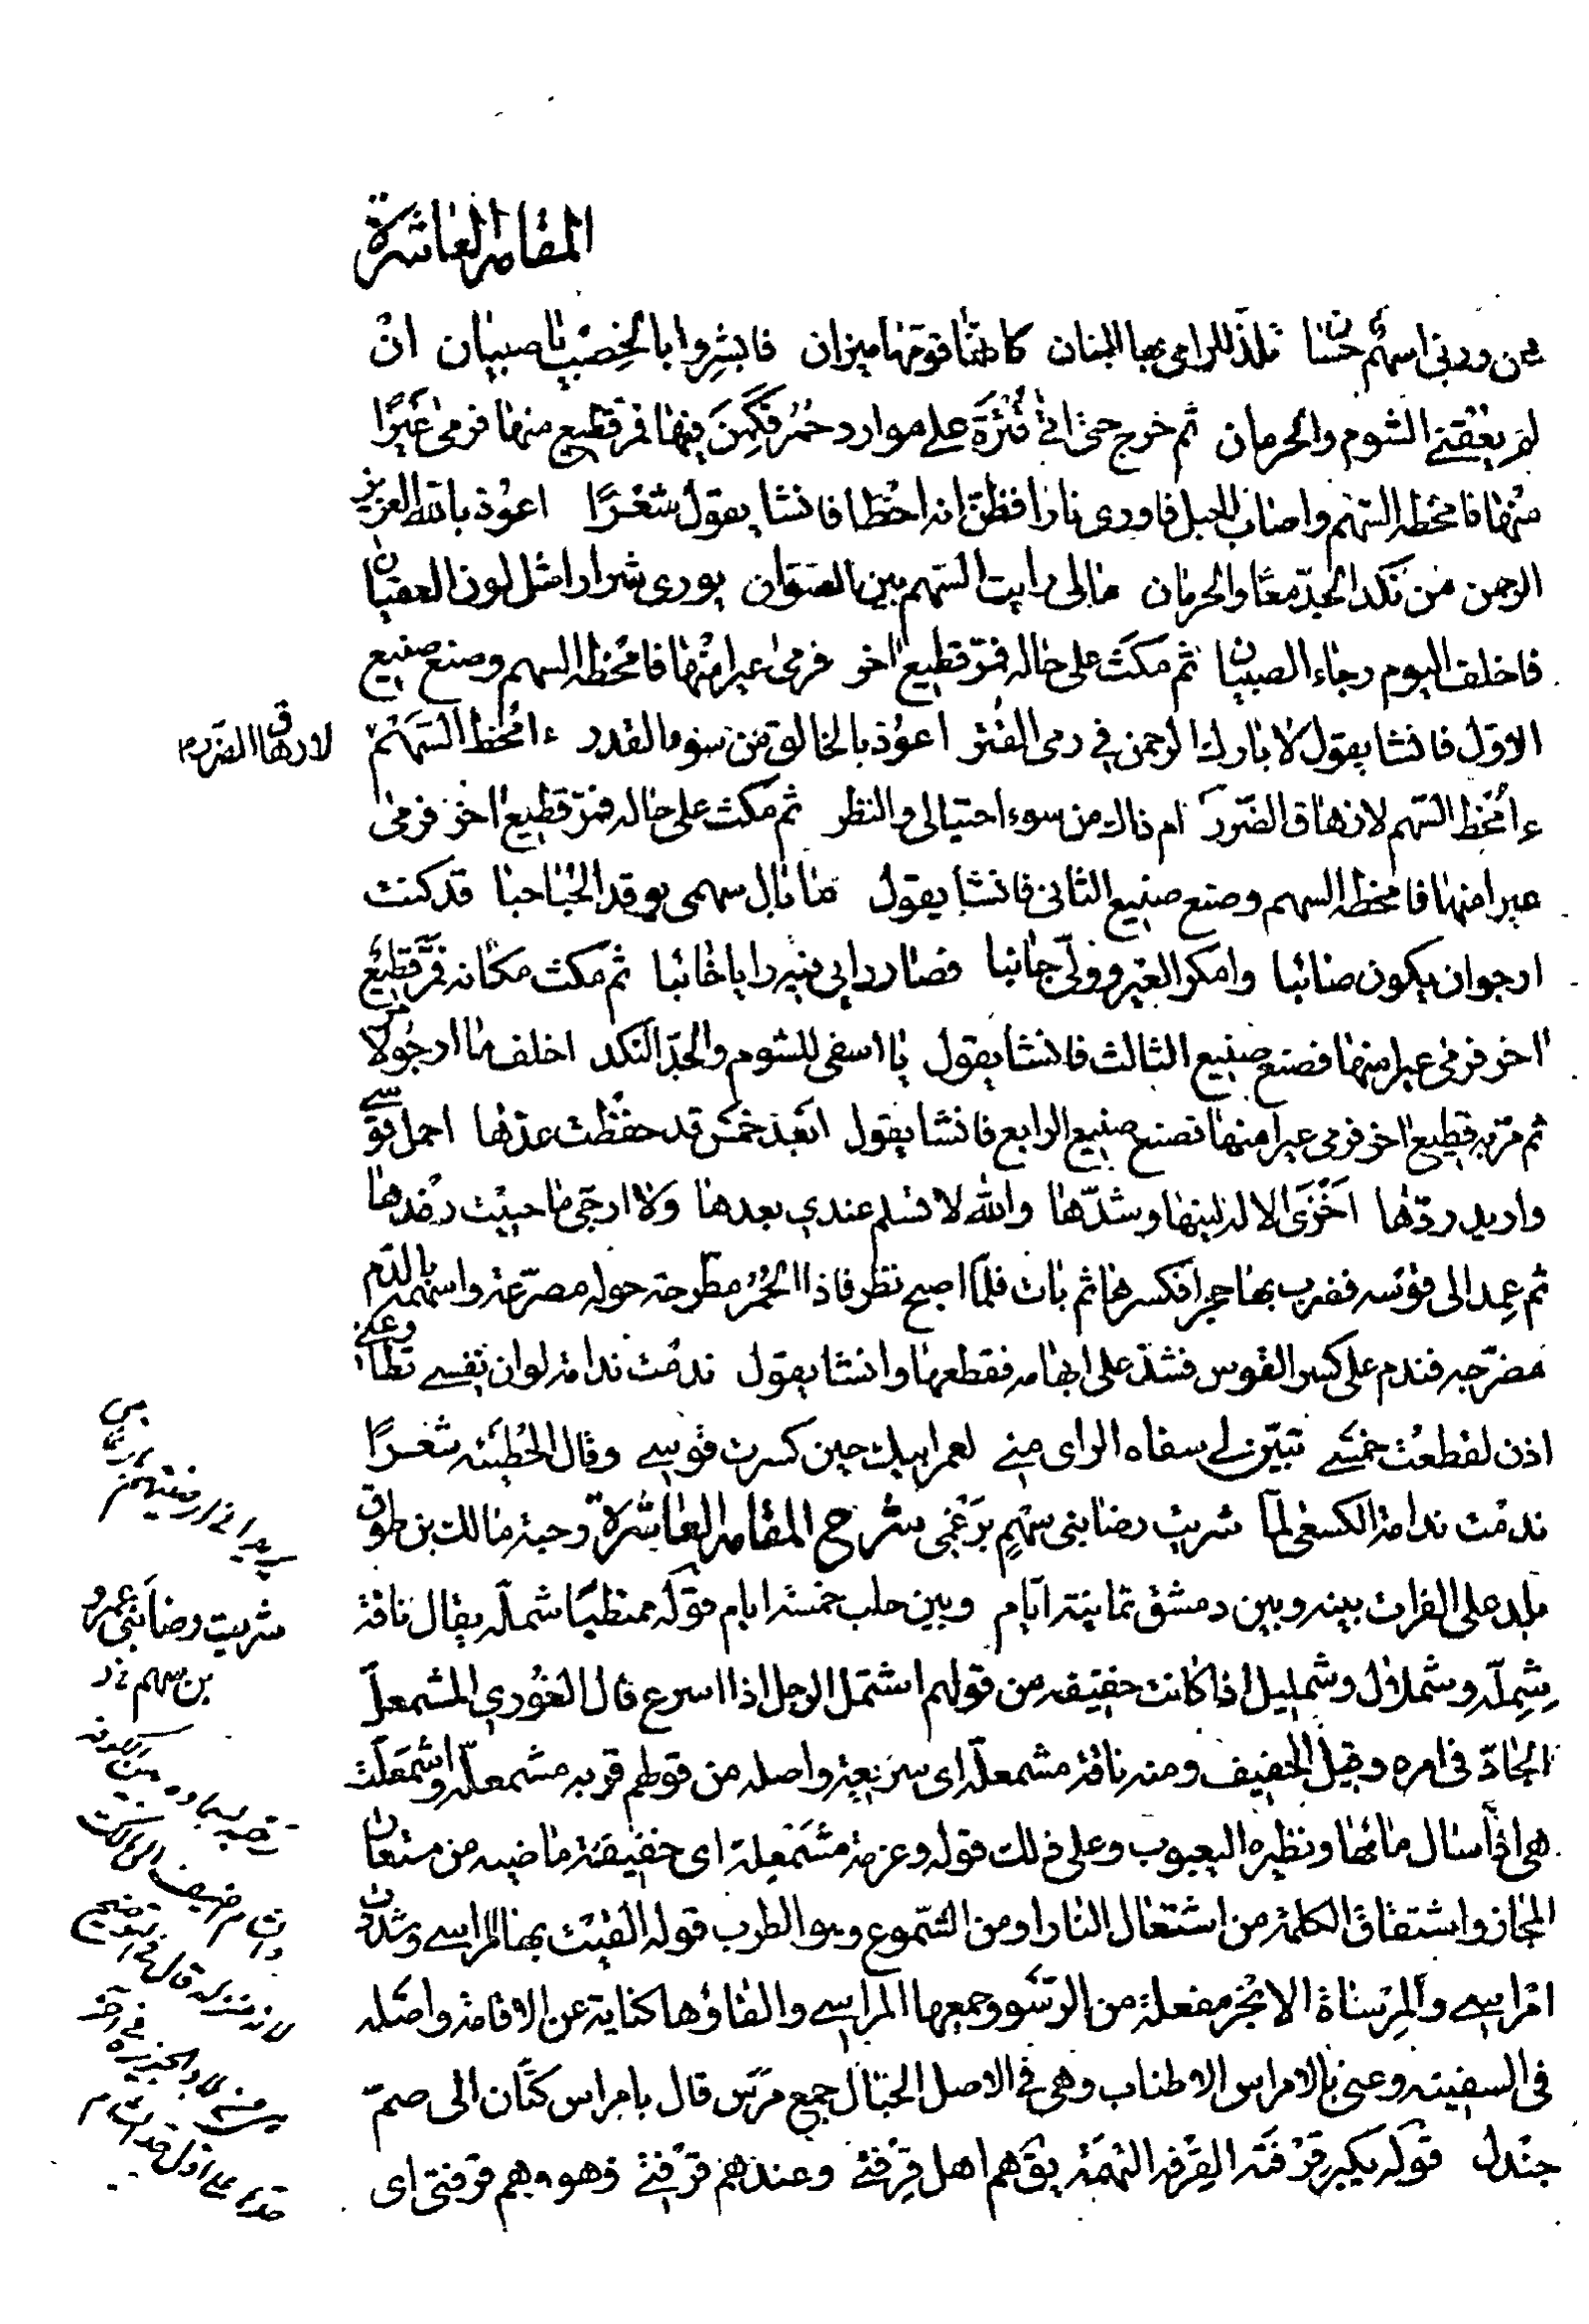 المقامة العاشرة
هن وربي اسهم حسان تلذ للرامي بها البنان كانما قومها ميزان فابشروا بالخصب يا صبيان ان
لم يعقني الشوم والحرمان ثم خرج حتى اتى قترة على موارد حمر فكمن فيها فمر قطيع منها فرمى عيرا
منها فامخطه السهم واصاب الجبل فاورى نارا فظن انه اخطا فانشا يقول شعرا اعوذ بالله العزيز
الرحمن من نكد الجد معا والحرمان مالي رايت السهم بين الصوان يوري شرارا مثل لون العقيان
فاخلف اليوم رجاء الصبيان ثم مكث على حاله فمر قطيع اخر فرمى عيرا منها فامخطه السهم وصنع صنيع
الاول فانشا يقول لا بارك الرحمن في رمي القتر اعوذ بالخالق من سوء القدر ءامخط السهم
لارهاق الضرر
ءامخط السهم لارهاق الضرر ام ذاك من سوء احتيالي والنظر ثم مكث على حاله فمر قطيع اخر فرمى
عيرا منها فامخطه السهم وصنع صنيع الثاني فانشا يقول ما بال سهمي يوقد الحباحبا قد كنت
ارجو ان يكون صائبا وامكن العير وولى جانبا فصار رايي فيه رايا خائبا ثم مكث مكانه فمر قطيع
اخر فرمى عيرا منها فصنع صنيع الثالث فانشا يقول يا اسفي للشوم والجد النكد اخلف ما ارجو لا
ثم مر به قطيع اخر فرمى عيرا منها فصنع صنيع الرابع فانشا يقول ابعد خمس قد حفظت عدها احمل قوسي
واريد ردها اخزى الاله لينها وشدها والله لا تسلم عندي بعدها ولا ارجي ما حييت رفدها
ثم عمد الى قوسه فضرب بها حجرا فكسرها ثم بات فلما اصبح نظر فاذا الحمر مطرحة حوله مصرعة واسهمه بالدم
مضرجه فندم على كسر القوس فشد على ابهامه فقطعها وانشا يقول ندمت ندامة لو ان نفسي تطاوعني
اذن لقطعت خمسي تبين لي سفاه الراي مني لعمر ابيك حين كسرت قوسي وقال الحطيئه شعرا
ندمت ندامة الكسعي لما شريت رضا بني سهم برغمي شرح المقامة العاشرة رحبة مالك بن طوق
بلد على الفرات بينه وبين دمشق ثمانية ايام وبين حلب خمسة ايام قوله ممتطيا شملة يقال ناقة
شملة وشملال وشمليل اذا كانت خفيفه من قولهم اشتمل الرجل اذا اسرع قال الغوري المشمعل
الجاد في امره وقيل الخفيف ومنه ناقة مشمعلة اى سريعة واصله من قولهم قربه مشمعلة واشمعلت
هي اذا سال ماؤها ونظيره اليعبوب وعلى ذلك قوله وعزمة مشمعلة اى خفيفة ماضيه من مستعار
المجاز واشتقاق الكلمة من اشتعال النار او من الشموع وهو الطرب قوله القيت بها المراسي وشددت
امراسي والمرساة الانجر مفعلة من الرسو وجمعها المراسي والقاؤها كناية عن الاقامة واصله
في السفينه وعنى بالامراس الاطناب وهي في الاصل الحبال جمع مرس قال بامراس كتان الى صم
جندل قوله يكبر قرفته القرفة التهمة يق هم اهل قرفتي وعندهم قرفتي وهو وهم قرفتي اى
شريت رضا بني عمرو
بن سهم